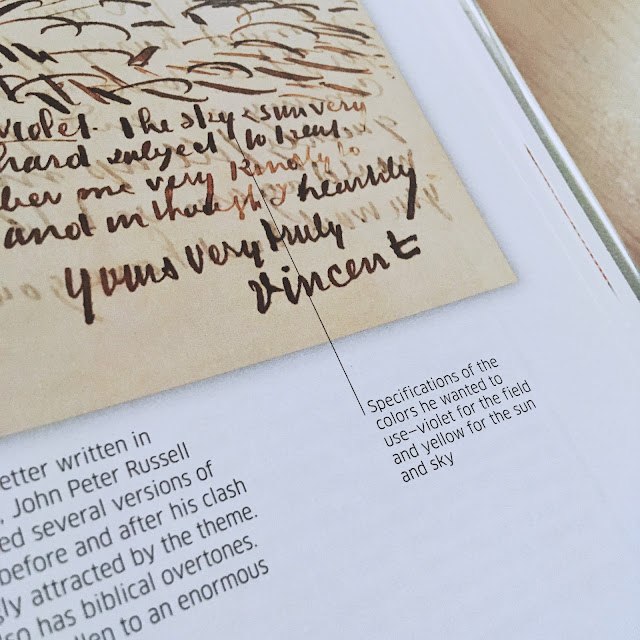 violet. The sky & sun very
hard subject to treat.
very kindly to
and in thoughts heartily
Yours very truly
Vincent
Specifications of the
colors he wanted to
use–violet for the field
and yellow for the sun
and sky
etter written in
John Peter Russell
ed several versions of
before and after his clash
ly attracted by the theme
so has biblical overtones.
llen to an enormous